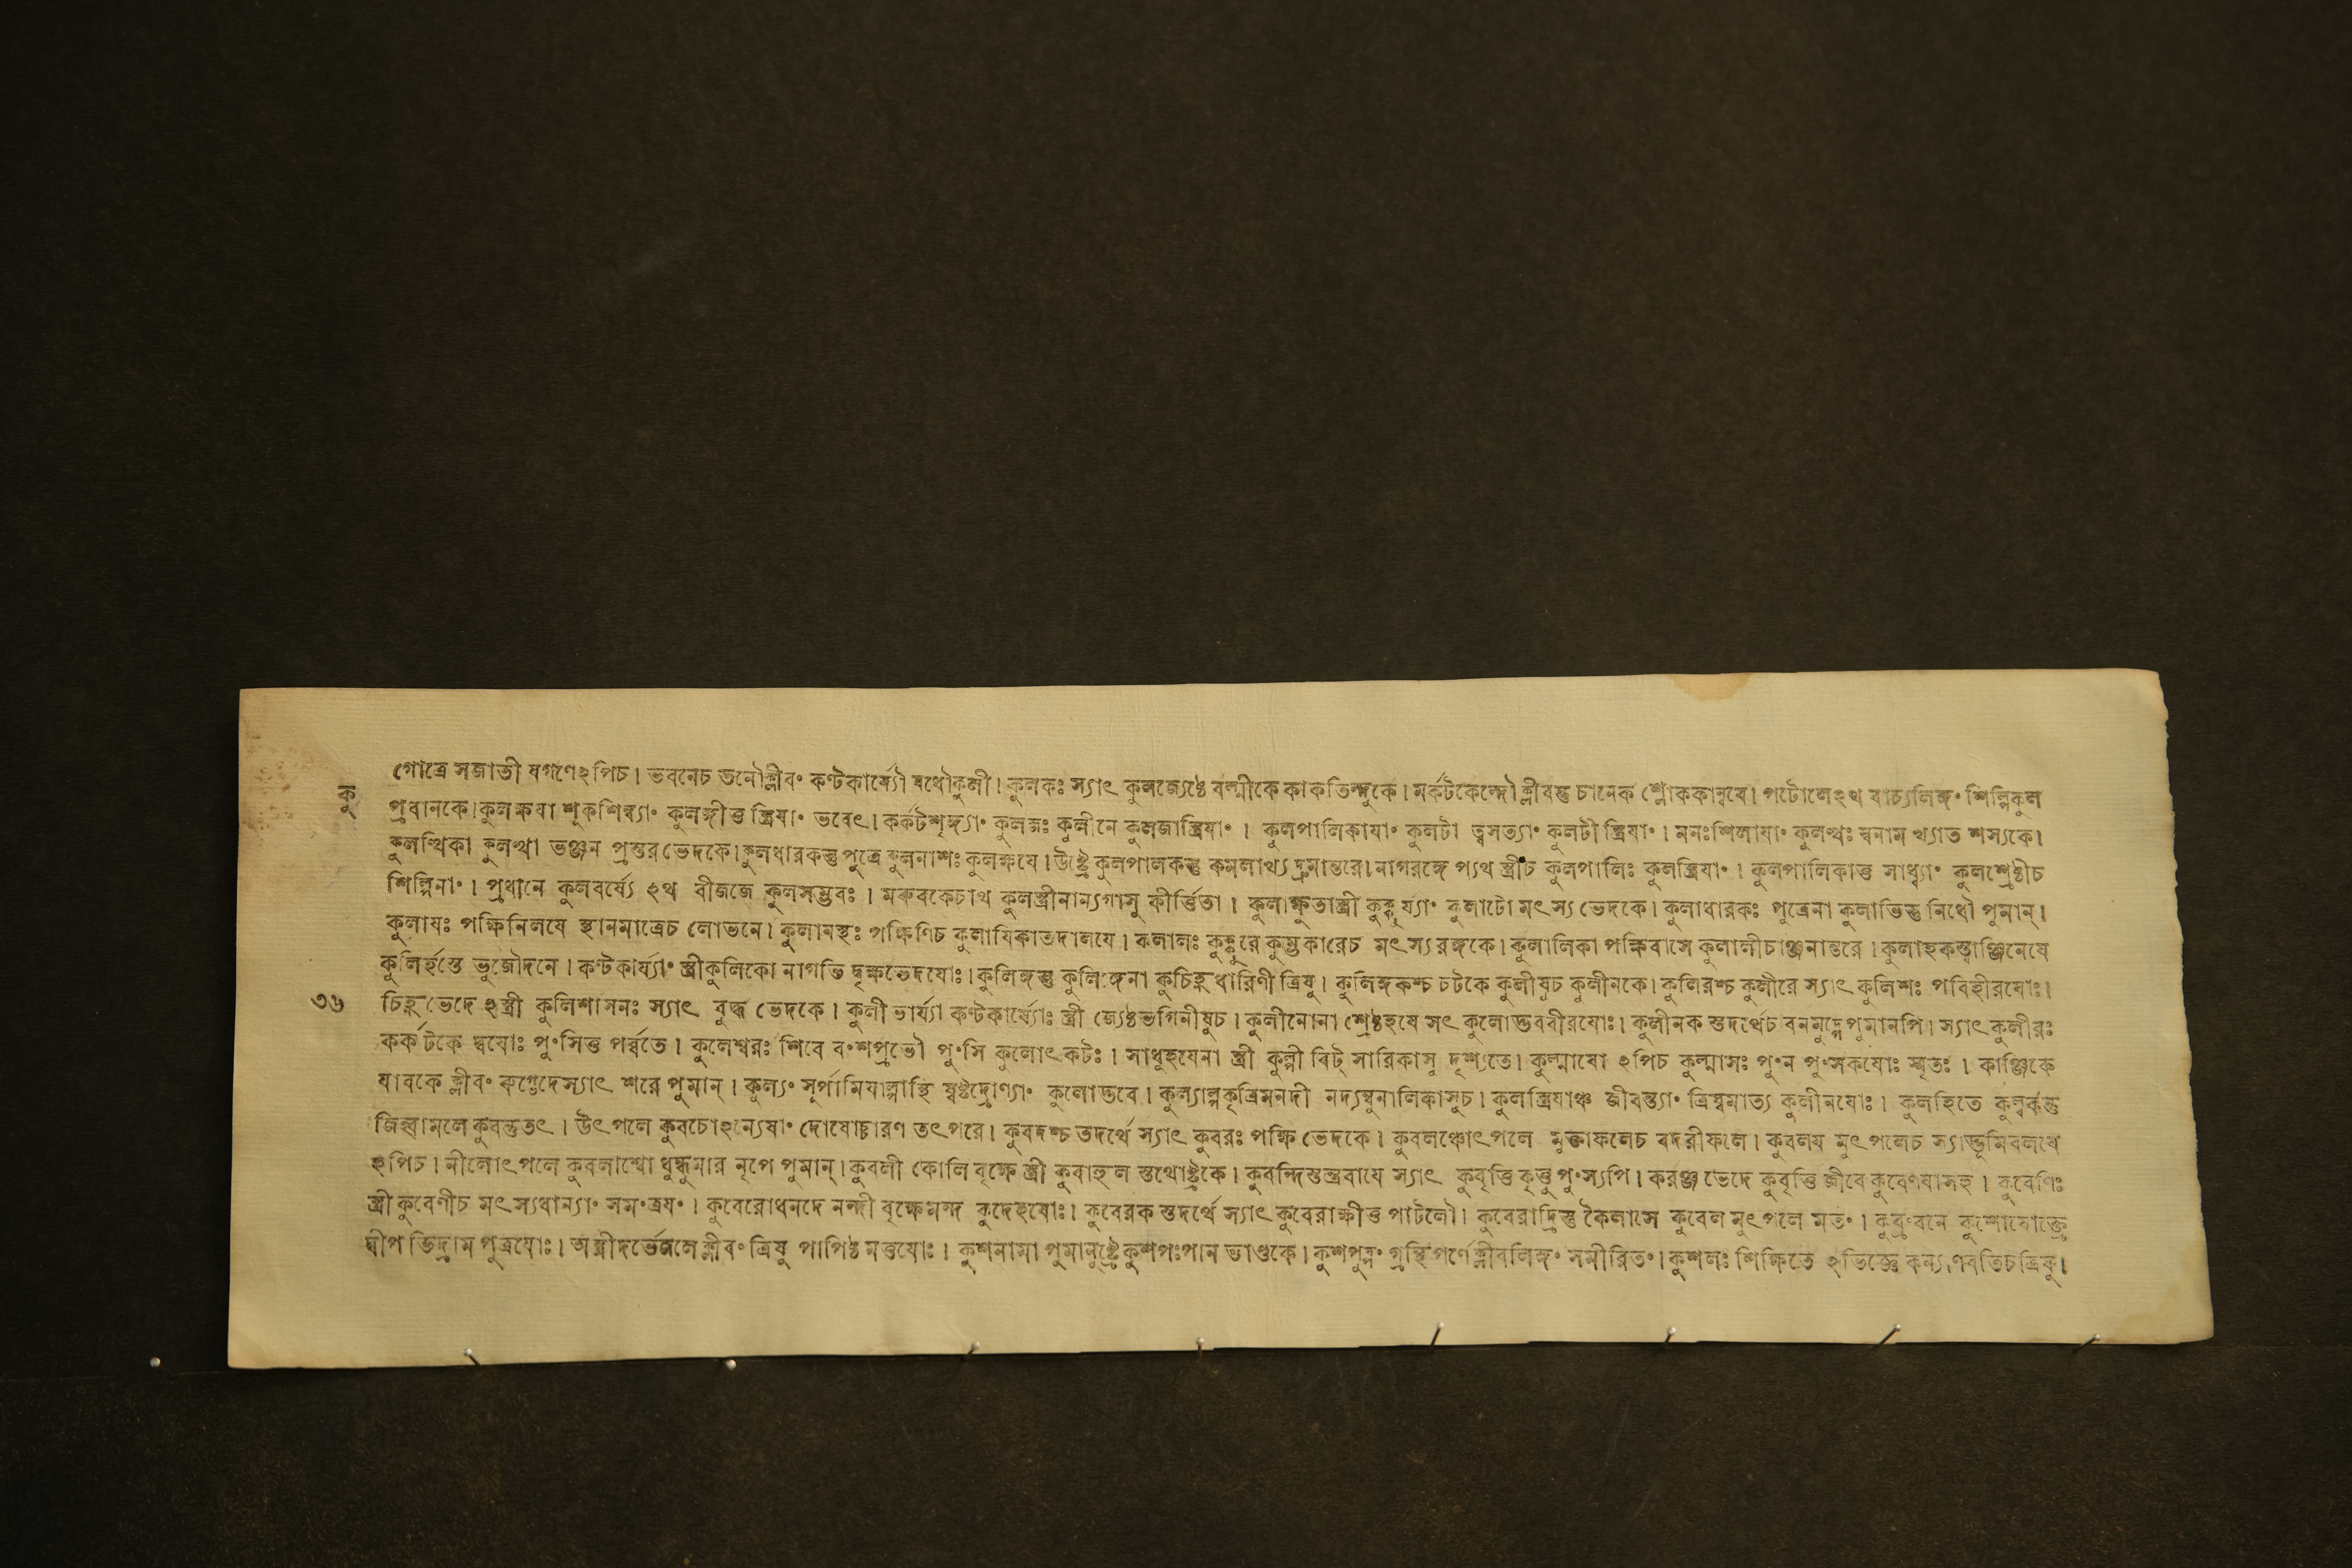 গোত্রে সজাতী যগণেঽপিচ। ভবনেচ তনৌক্লীবং কণ্টকার্য্যৌ ষধৌকুলী। কুলকঃ স্যাৎ কুলজ্যেষ্ঠে বল্মীকে কাকতিন্দুকে। মর্কটকেন্দৌক্লীবন্তু চানেক শ্লোককান্বষে। পটোলেঽথ বাচ্যলিঙ্গং শিল্পিকুল
কু
প্রধানকে। কুলক্ষযা শূকশিম্ব্যাং কুলঙ্গীত্ত স্ত্রিযাং ভবেৎ। কর্কটশৃঙ্গ্যাং কুলজঃ কুলীনে কুলজাস্ত্রিযাং। কুলপালিকাযাং কুলটা ত্বসত্যাং কুলটী স্ত্রিযাং। মনঃশিলাযাং কুলত্থঃ স্বনাম খ্যাত শস্যকে।
কুলত্থিকা কুলত্থা ভঞ্জন প্রস্তর ভেদকে। কুলধারকস্তু পুত্রে কুলনাশঃ কুলক্ষযে। উষ্ট্রে কুলপালকন্তু কমলাখ্য দ্রুমান্তরে। নাগরঙ্গে প্যথ স্ত্রীচ কুলপালিঃ কুলস্ত্রিযাং। কুলপালিকাত্ত সাধ্ব্যাং কুলশ্রেষ্ঠীচ
শিল্পিনাং। প্রধানে কুলবর্য্যে ঽথ বীজজে কুলসম্ভবঃ। মরুবকেচাথ কুলস্ত্রীনান্যগাসু কীর্ত্তিতা। কুলাক্ষুতাস্ত্রী কুক্কুর্য্যাং কুলাটো মৎস্য ভেদকে। কুলাধারকঃ পুত্রেনা কুলাভিস্তু নিধৌ পুমান্।
কুলাযঃ পক্ষিনিলযে স্থানমাত্রেচ লোভনে। কুলাযস্থঃ পক্ষিণিচ কুলাযিকাতদালযে। কলালঃ কুক্কুরে কুম্ভকারেচ মৎস্যরঙ্গকে। কুলালিকা পক্ষিবাসে কুলালীচাঞ্জনান্তরে। কুলাহকস্ত্বাঞ্জিনেষে
কুলির্হস্তে ভুজৌদনে। কণ্টকার্য্যাং স্ত্রীকুলিকো নাগভি দ্বৃক্ষভেদযোঃ। কুলিঙ্গস্তু কুলিঙ্গেনা কুচিহ্নধারিণী ত্রিষু। কুলিঙ্গকশ্চ চটকে কুলীযুচ কুলীনকে। কুলিরশ্চ কুলীরে স্যাৎ কুলিশঃ পবিহীরযোঃ।
৩৬
চিহ্নভেদে ঽস্ত্রী কুলিশাসনঃ স্যাৎ বুদ্ধ ভেদকে। কুলী ভার্য্যা কণ্টকার্য্যোঃ স্ত্রী জ্যেষ্ঠভগিনীষুচ। কুলীনোনা শ্রেষ্ঠহযে সৎ কুলোদ্ভববীরযোঃ। কুলীনক স্তদর্থেচ বনমুদ্গেপুমানপি। স্যাৎ কুলীরঃ
কর্কটকে দ্বযোঃ পুংসিত্ত পর্ব্বতে। কুলেশ্বরঃ শিবে বংশপ্রভৌ পুংসি কুলোৎকটঃ। সাধুহযেনা স্ত্রী কুল্পী বিট্ সারিকাসু দৃশ্যতে। কুল্মাষো ঽপিচ কুল্মাসঃ পুংন পুংসকযোঃ স্মৃতঃ। কাঞ্জিকে
যাবকে ক্লীবং রুগ্ভেদেস্যাৎ শরে পুমান্। কুল্যং সূর্পামিযাল্পাস্থি ষ্বষ্টদ্রোণ্যাং কুলোদ্ভবে। কুল্যাল্পকৃত্রিমনদী নদ্যম্বুনালিকাসুচ। কুলস্ত্রিযাঞ্চ জীবন্ত্যাং ত্রিষ্বমাত্য কুলীনযোঃ। কুলহিতে কুল্বর্কন্তু
জিহ্বামলে কুবন্তুতৎ। উৎপলে কুবচোঽন্যেষাং দোষোচ্চারণ তৎপরে। কুবদশ্চ তদর্থে স্যাৎ কুবরঃ পক্ষি ভেদকে। কুবলঞ্চোৎপলে মুক্তাফলেচ বদরীফলে। কুবলয মুৎপলেচ স্যাদ্ভূমিবলযে
ঽপিচ। নীলোৎপলে কুবলাশ্বো ধুন্ধুমার নৃপে পুমান্। কুবলী কোলি বৃক্ষে স্ত্রী কুবাহুল স্তথোষ্ট্রকে। কুবন্দিস্তন্ত্রবাযে স্যাৎ কুবৃত্তি কৃত্তু পুংস্যপি। করঞ্জ ভেদে কুবৃত্তি জীবে কুবেণযাসহ। কুবেণিঃ
স্ত্রী কুবেণীচ মৎস্যধান্যাং সমংত্রযং। কুবেরোধনদে নন্দী বৃক্ষেমন্দ কুদেহযোঃ। কুবেরক স্তদর্থে স্যাৎ কুবেরাক্ষীত্ত পাটলৌ। কুবেরাদ্রিস্তু কৈলাসে কুবেল মুৎপলে মতং। কুশোযোক্ত্রে
দ্বীপ ভিদ্রাম পুত্রযোঃ। অস্ত্রীদর্ভেজলে ক্লীবং ত্রিষু পাপিষ্ঠ মত্তযোঃ। কুশনামা পুমানুষ্ট্রে কুশপঃপান ভাণ্ডকে। কুশপুষ্পং গ্রন্থিপর্ণেক্লীবলিঙ্গং সমীরিতং। কুশলঃ শিক্ষিতে ঽভিজ্ঞে কল্যাণবতিচত্রিষু।